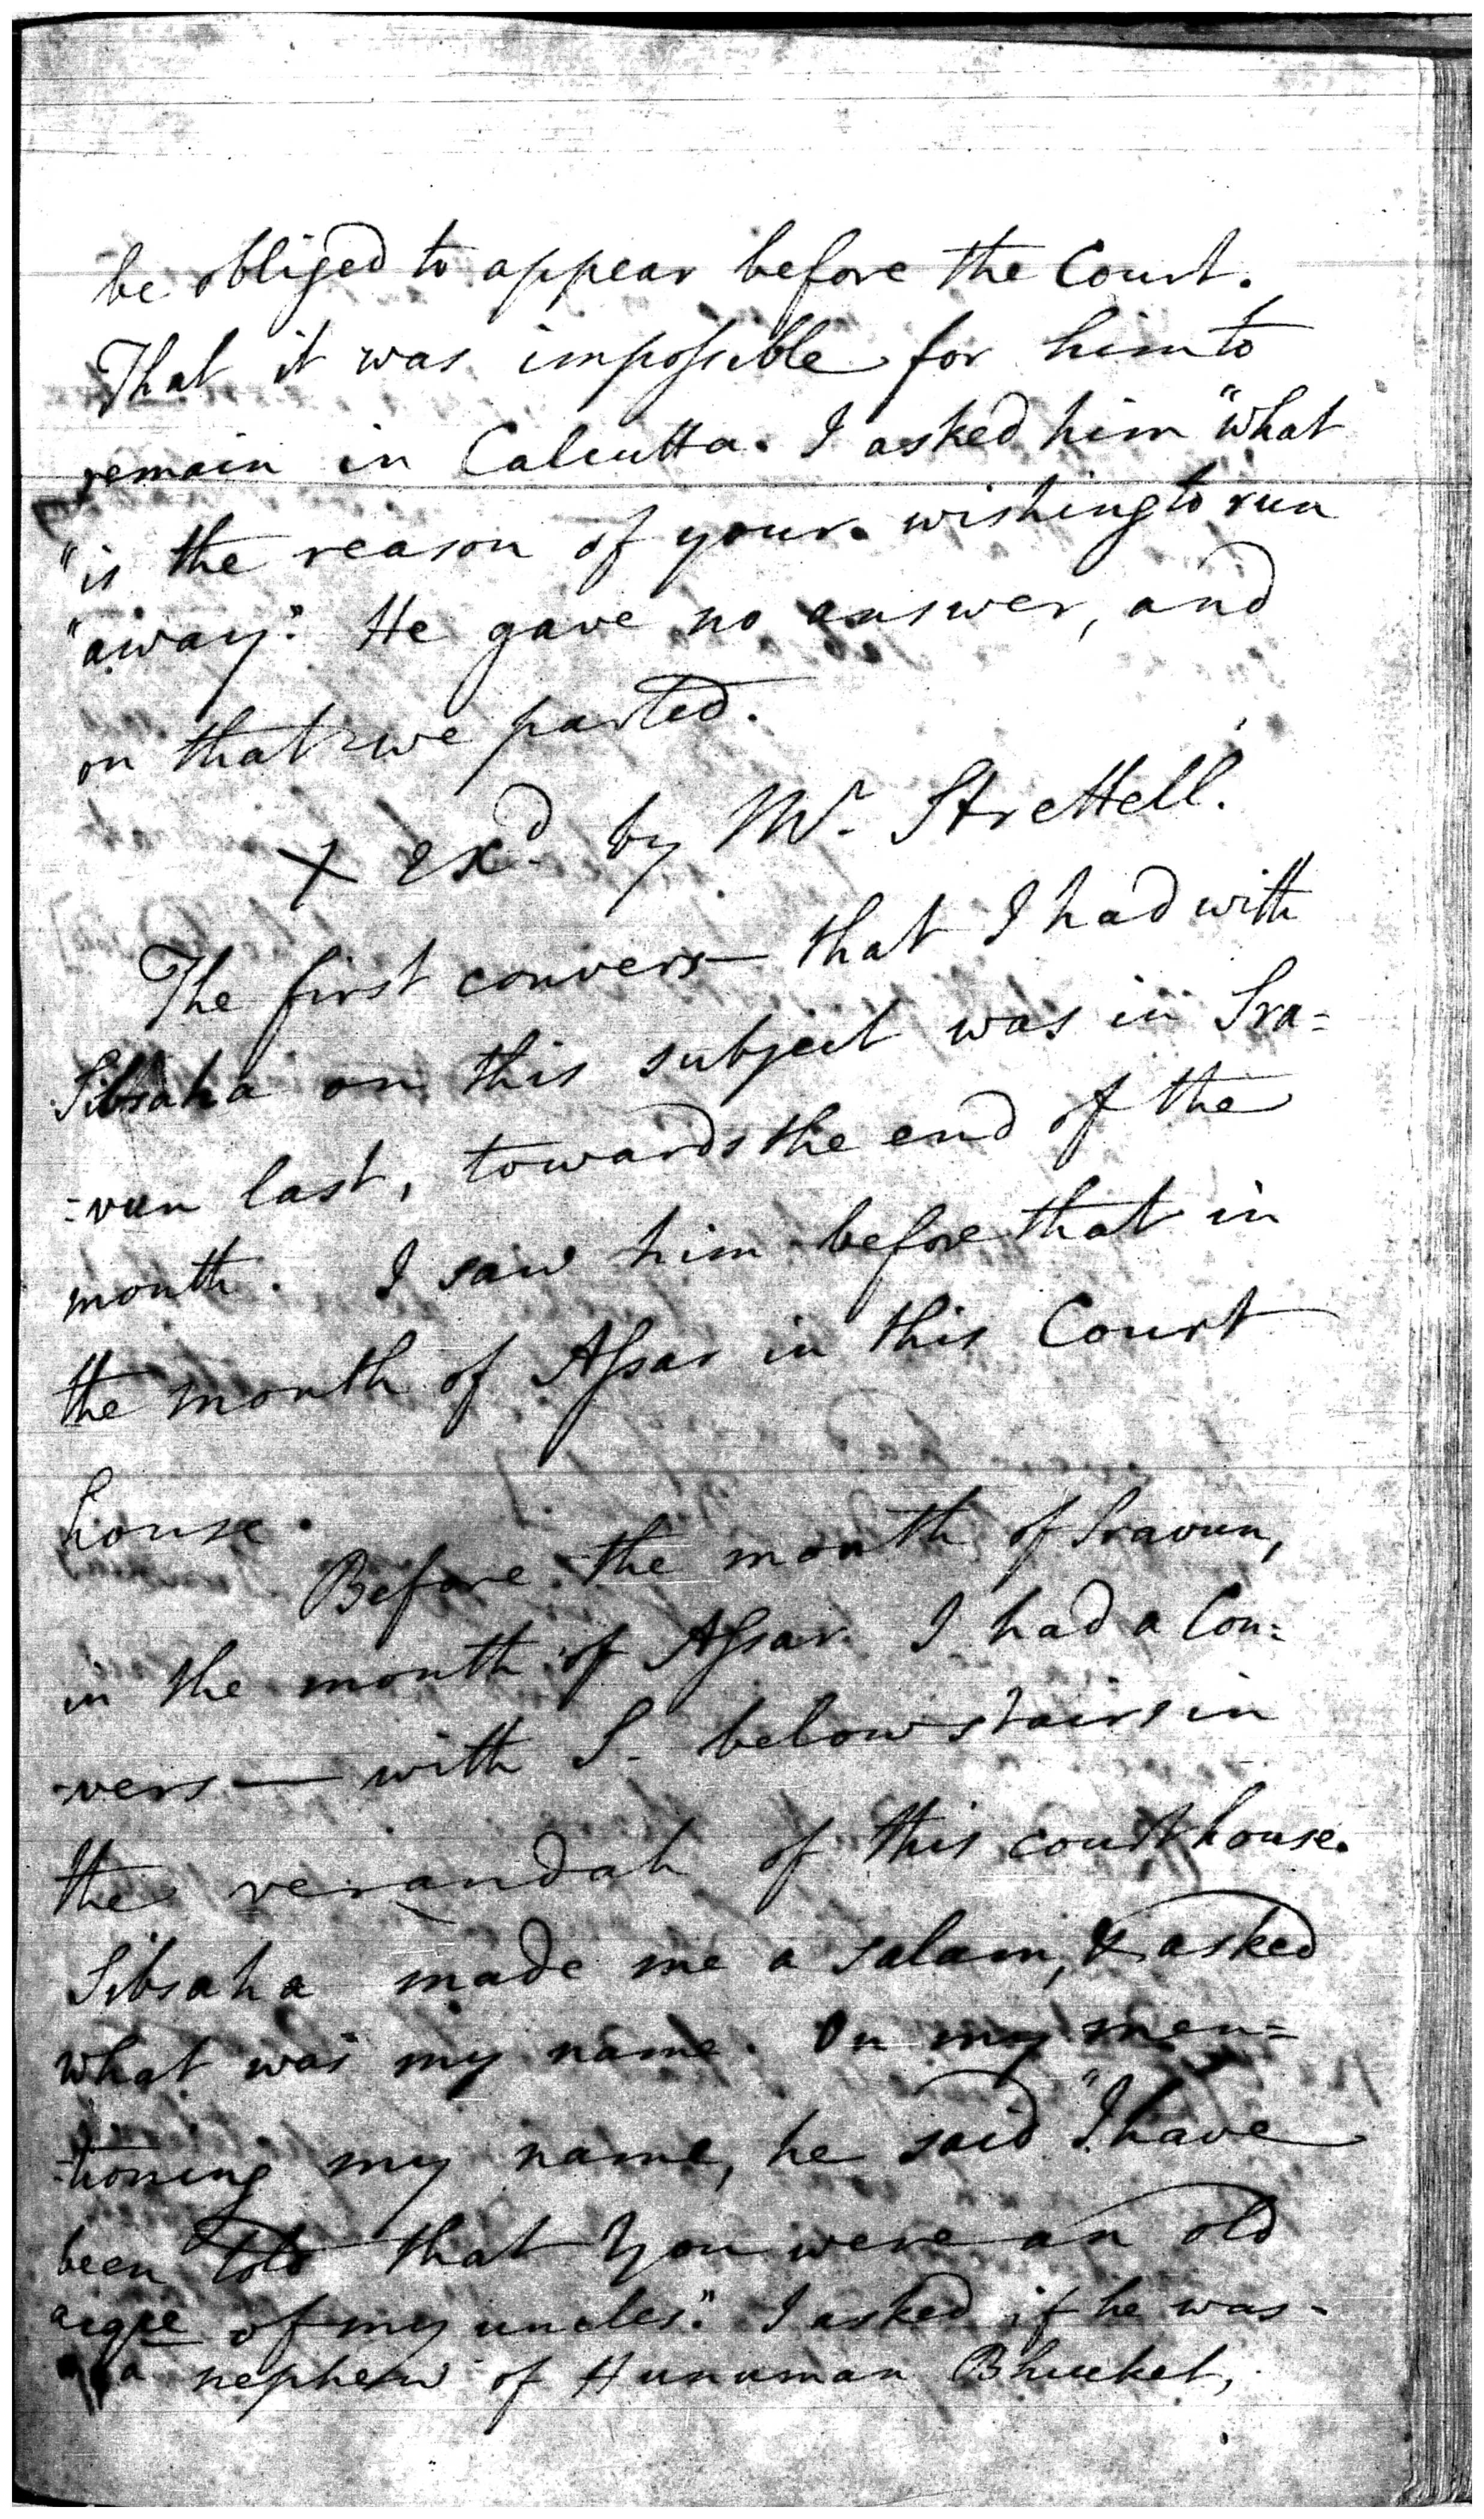 be obliged to appear before the Court.
That it was impossible for him to
remain in Calcutta. I asked him "what
"is the reason of your wishing to run
"away." He gave no answer, and
on that we parted.
X exd. by Mr. Strettell.
The first convers— that I had with
Sibsaha on this subject was in Sra=
=vun last, towards the end of the
month. I saw him before that in
the month of Assar in this Court
house.
Before the month of Sravun,
in the month of Assar I had a Con=
-vers— with S. below stairs in
the verandah of this court house.
Sibsaha made me a salam, & asked
what was my name. On my men=
-tioning my name, he said "I have
been told that you were an old
acqce of my uncles." I asked if he was
a nephew of Hunuman Bhucket,